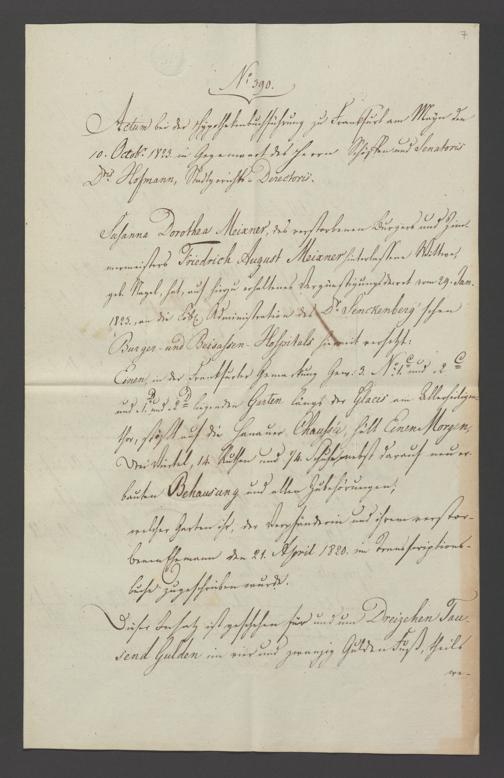 7
No. 390.
Actum bei der Hypothekenbuchführung zu Frankfurt am Mayn den
10. Octobr. 1823 in Gegenwart des Herrn Schöffen und Senatoris
Dris Hofmann, Stadtgerichts-Directoris.
Susanna Dorothea Meixner, des verstorbenen Burgers und Zim-
mermeisters Friedrich August Meixner hinterlassene Wittwe,
geb. Nagel, hat, auf hierzu erhaltenes Vergünstigungsdecret vom 29. Jan.
1823, an die Löbl. Administration des Dr. Senckenberg'schen
Burger- und Beisassen-Hospitals hiermit versetzt:
Einen, in der Frankfurter Gemarkung Gew. 3. No. 1 C und 2 C
und 1 D und 2 D liegenden Garten längs der Glacis am Allerheiligen-
thor, stößt auf die Hanauer Chaussée, hält Einen Morgen,
Drei Viertel, 14. Ruthen und 74. Schuhe, nebst darauf neu er-
bauten Behausung und allen Zubehörungen,
welcher Garten ihr, der Verpfänderin und ihrem verstor-
benen Ehemann den 21. April 1820. im Transcriptions-
buche zugeschrieben wurde.
Dieser Insatz ist geschehen für und um Dreizehen Tau-
send Gulden im vier und zwanzig Gulden Fuß, theils